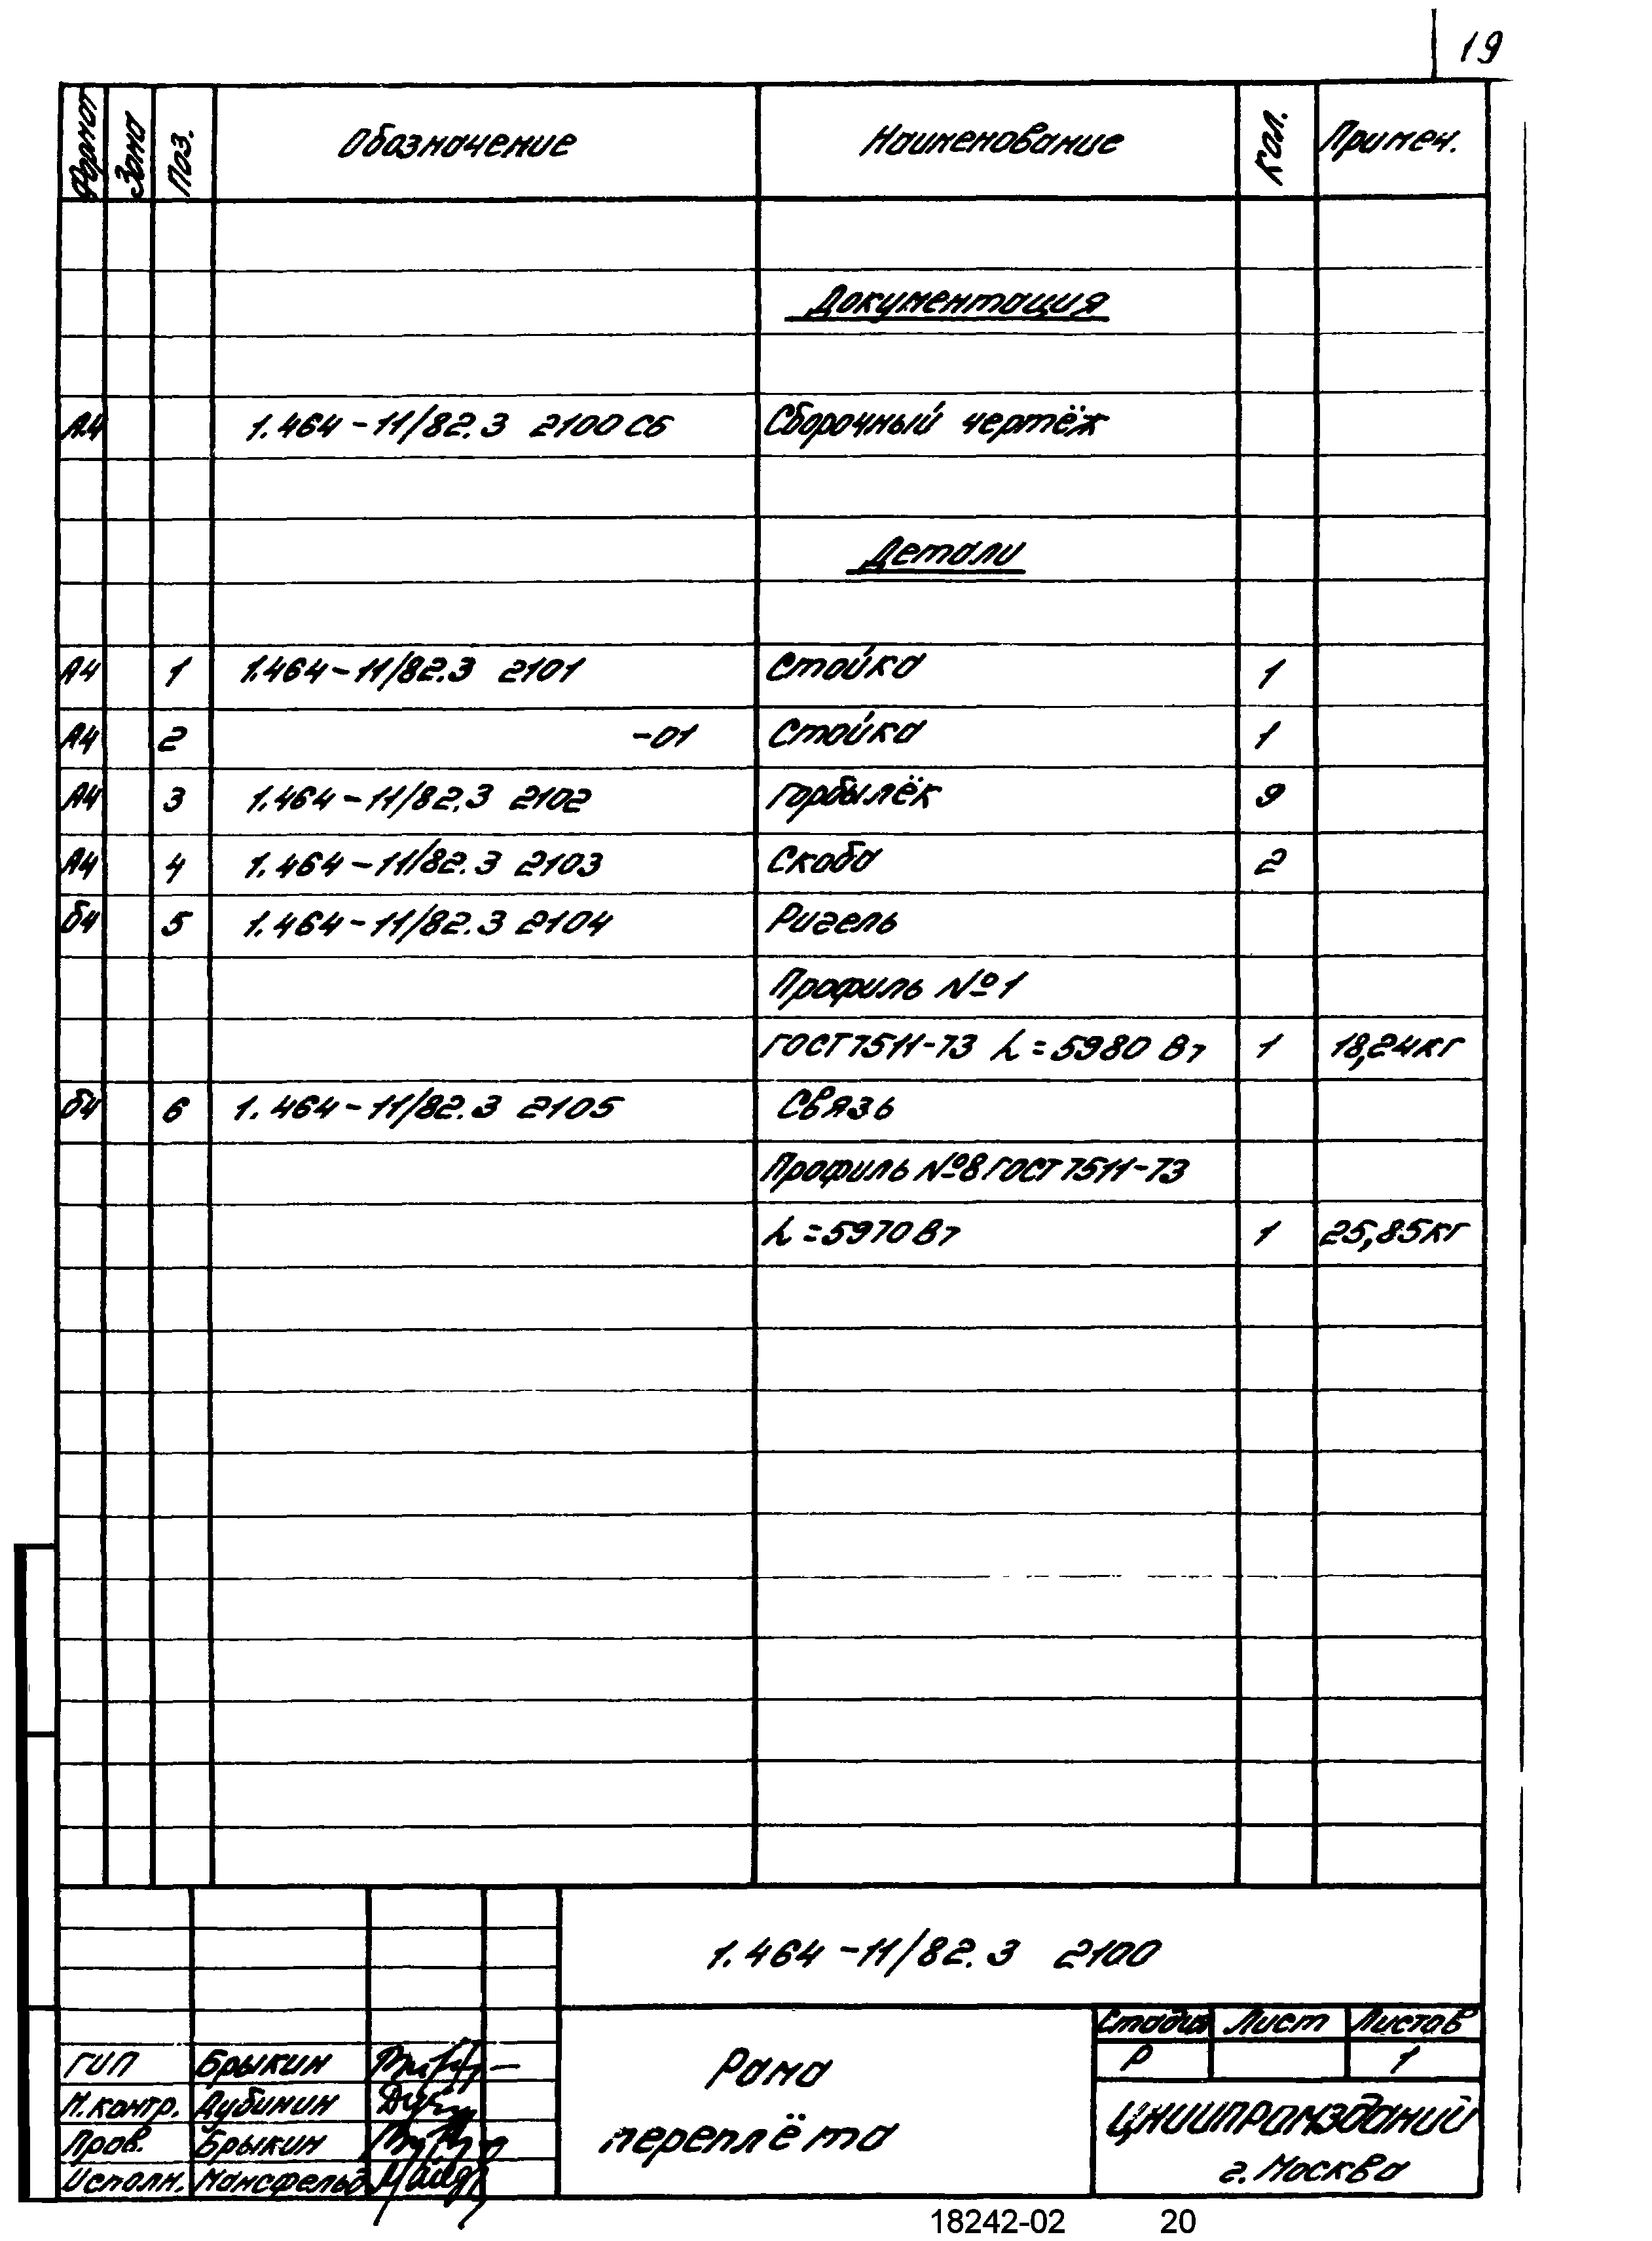 19
Формат Зона Поз. Обозначение Наименование Кол. Примеч.
Документация
А4 1.464-11/82.3 2100 СБ Сборочный чертёж
Детали
А4 1 1.464-11/82.3 2101 Стойка 1
А4 2 -01 Стойка 1
А4 3 1.464-11/82.3 2102 Горбылёк 9
А4 4 1.464-11/82.3 2103 Скоба 2
б4 5 1.464-11/82.3 2104 Ригель
Профиль №1
ГОСТ 7511-73 L=5980 Вт 1 18,24кг
б4 6 1.464-11/82.3 2105 Связь
Профиль №8 ГОСТ 7511-73
L=5970 Вт 1 25,85кг
1.464-11/82.3 2100
Стадия Лист Листов
Р 1
Рама
переплёта
ЦНИИПРОМЗДАНИЙ
г. Москва
ГИП Брыкин
Н.контр. Дубинин
Пров. Брыкин
Исполн. Мансфельд
18242-02 20